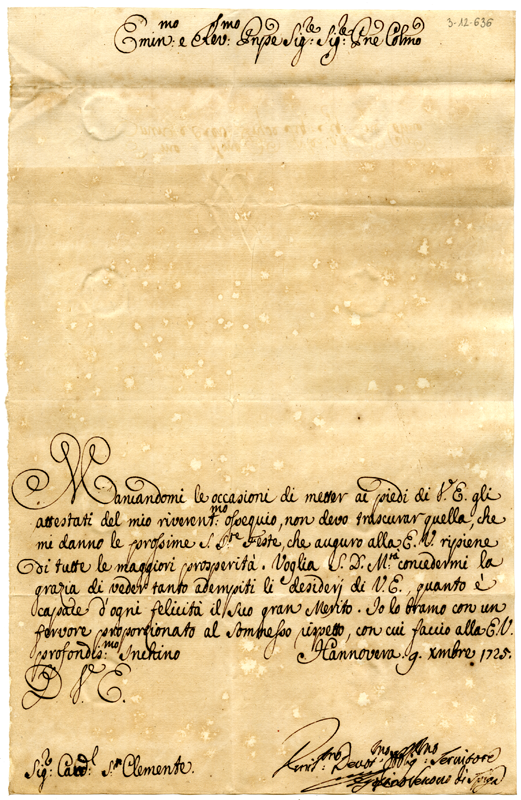 3-12-636
Emin:mo e Rev:smo Pnpe Sig:re Sig:re Pne Colmo
Mancandomi le occasioni di metter ai piedi di V.E. gli
attestati del mio riverent:mo ossequio, non devo trascurar quella, che
mi danno le prossime S. S:te Feste, che auguro alla E.V. ripiene
di tutte le maggiori prosperità. Voglia S.D.M:tà concedermi la
grazia di veder tanto adempiti li desiderj di V.E., quanto è
capace d'ogni felicità il Suo gran Merito. Io lo bramo con un
fervore proporzionato al sommesso rispetto, con cui faccio alla E.V.
profondis:mo Inchino Hannovera. 9. xmbre 1725.
D V.E.
Sig:r Card:l S:n Clemente.
Devot:mo Obblig:mo Servitore
di Spiga